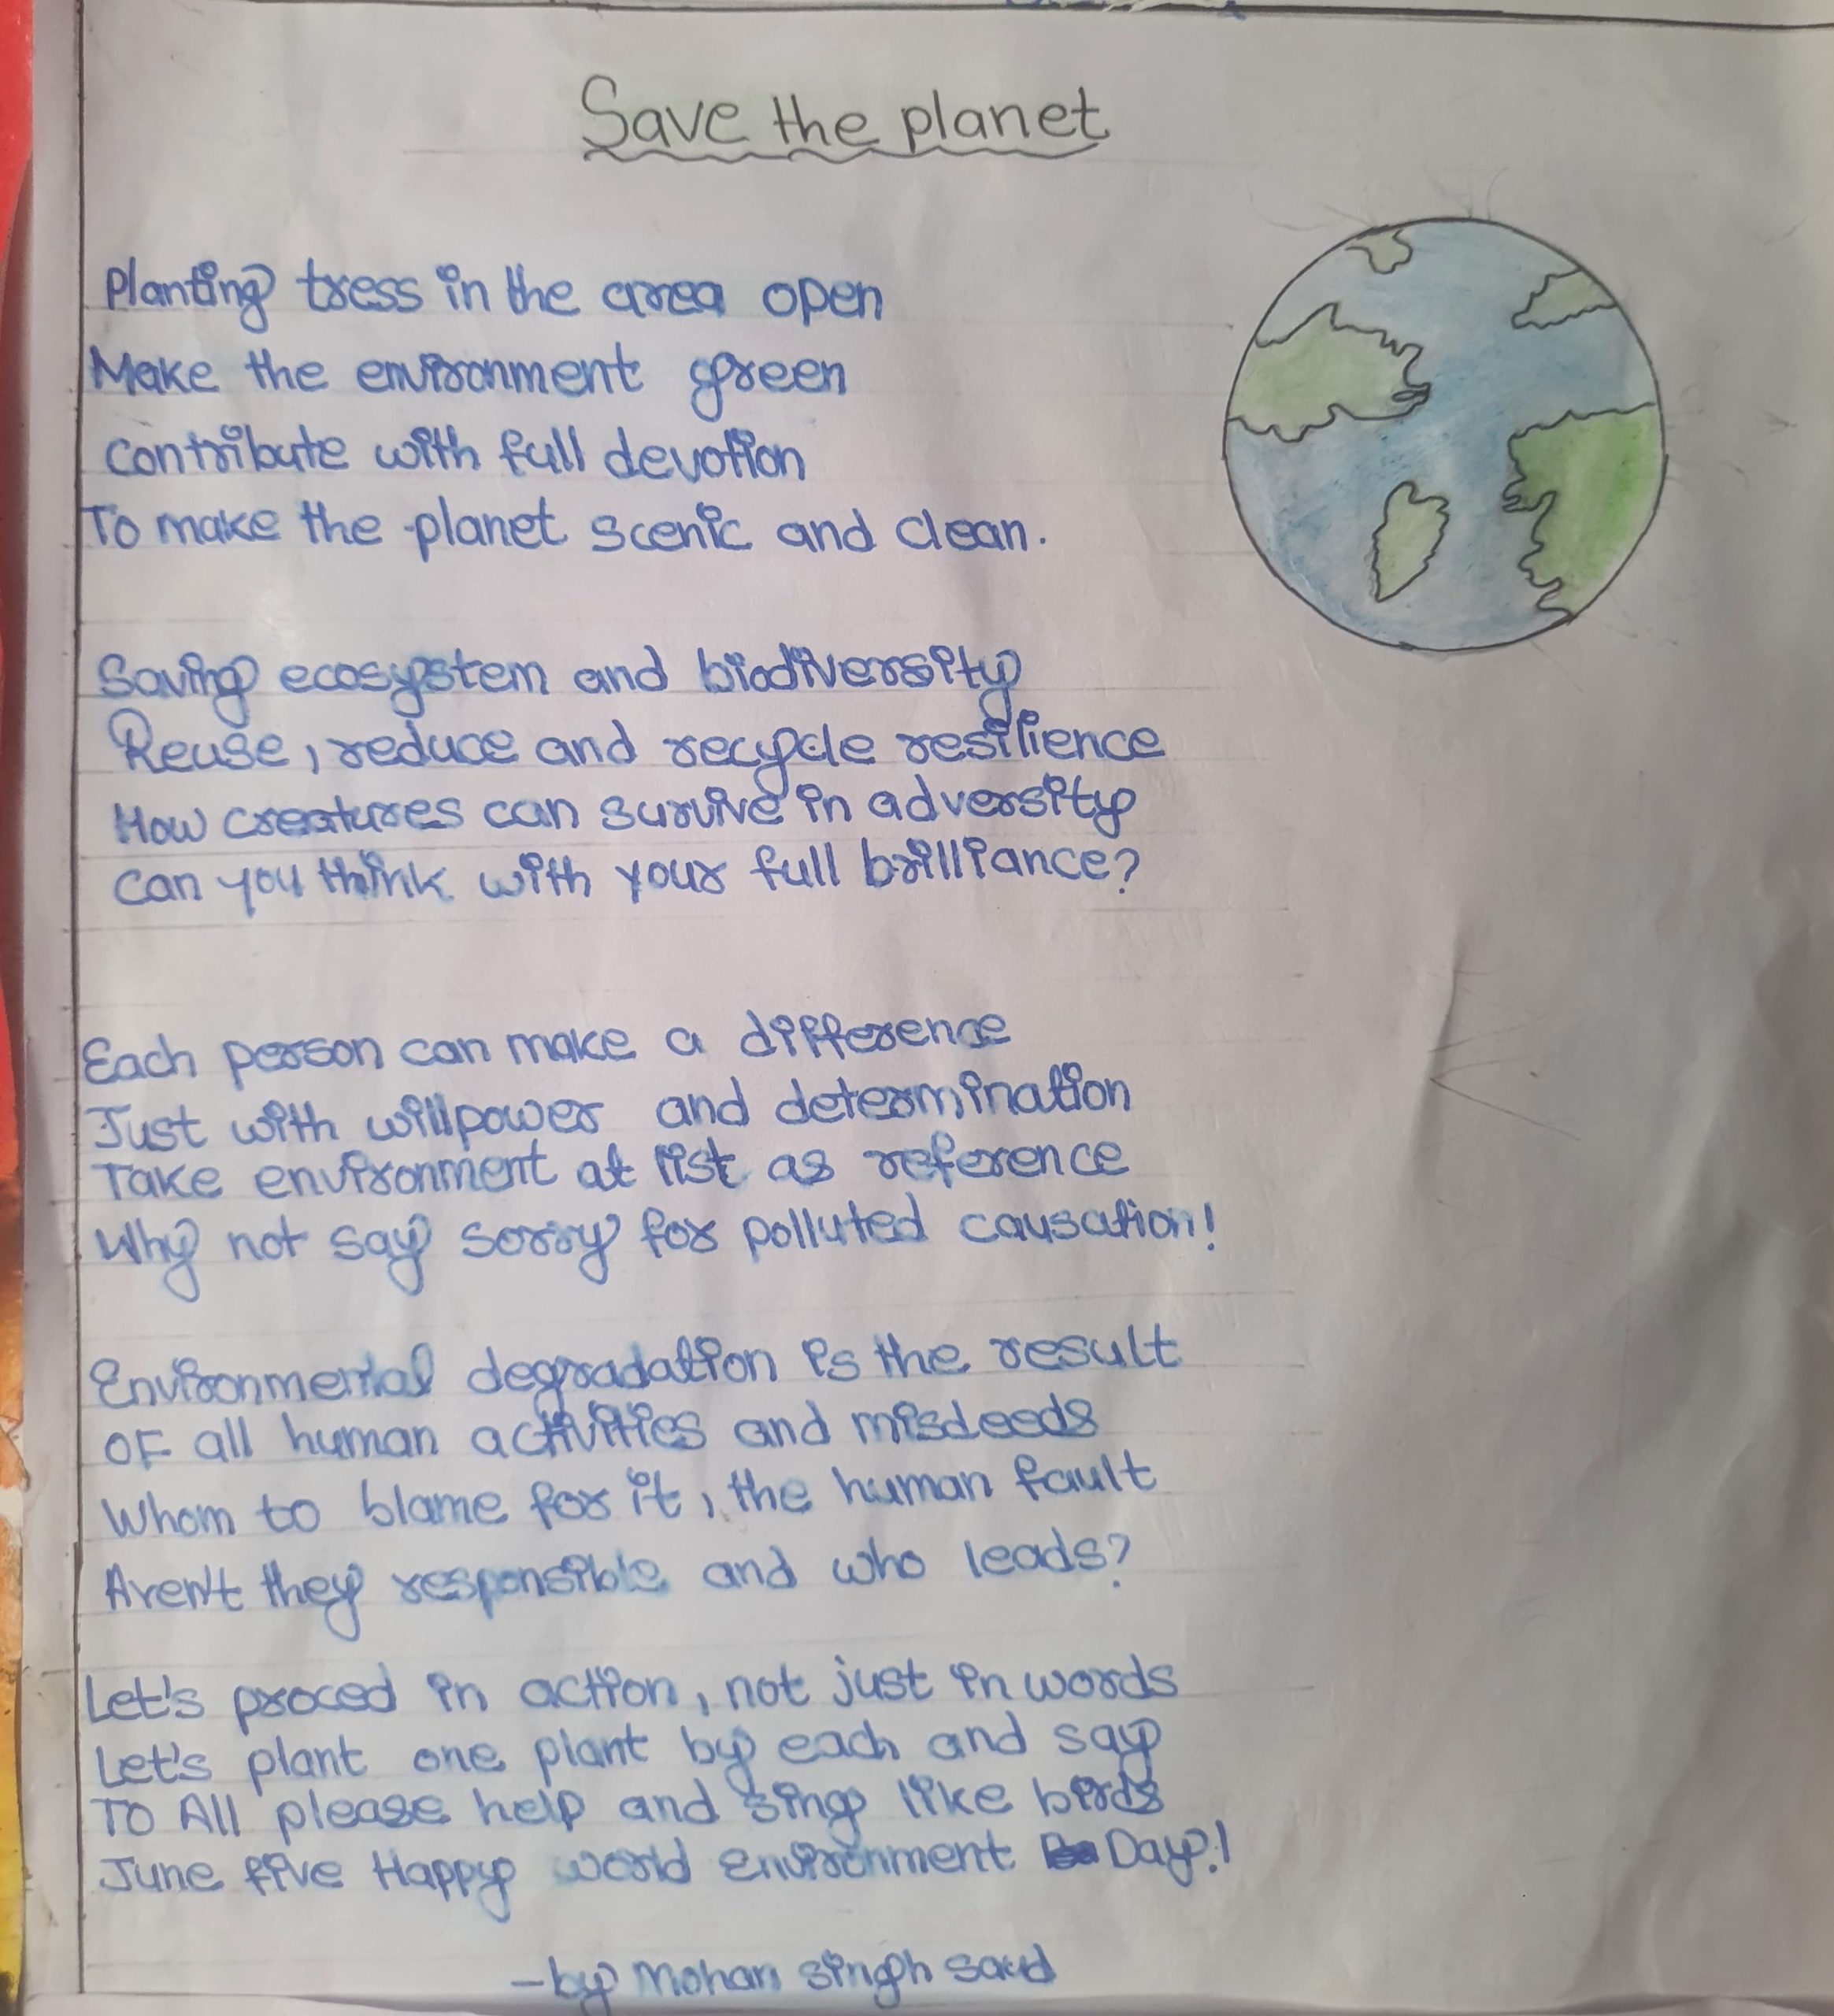 Save the planet
Planting tress in the area open
Make the environment green
contribute with full devotion
To make the planet scenic and clean.
Saving ecosystem and biodiversity
Reuse, reduce and recycle resilience
How creatures can survive in adversity
can you think with your full brilliance?
Each person can make a difference
Just with willpower and determination
Take environment at list as reference
Why not say sorry for polluted causation!
Environmental degradation is the result
OF all human activities and misdeeds
Whom to blame for it, the human fault
Aren't they responsible and who leads?
Let's proced in action, not just in words
Let's plant one plant by each and say
TO All please help and sing like birds
June five Happy world Environment Day!
-by Mohan singh saud